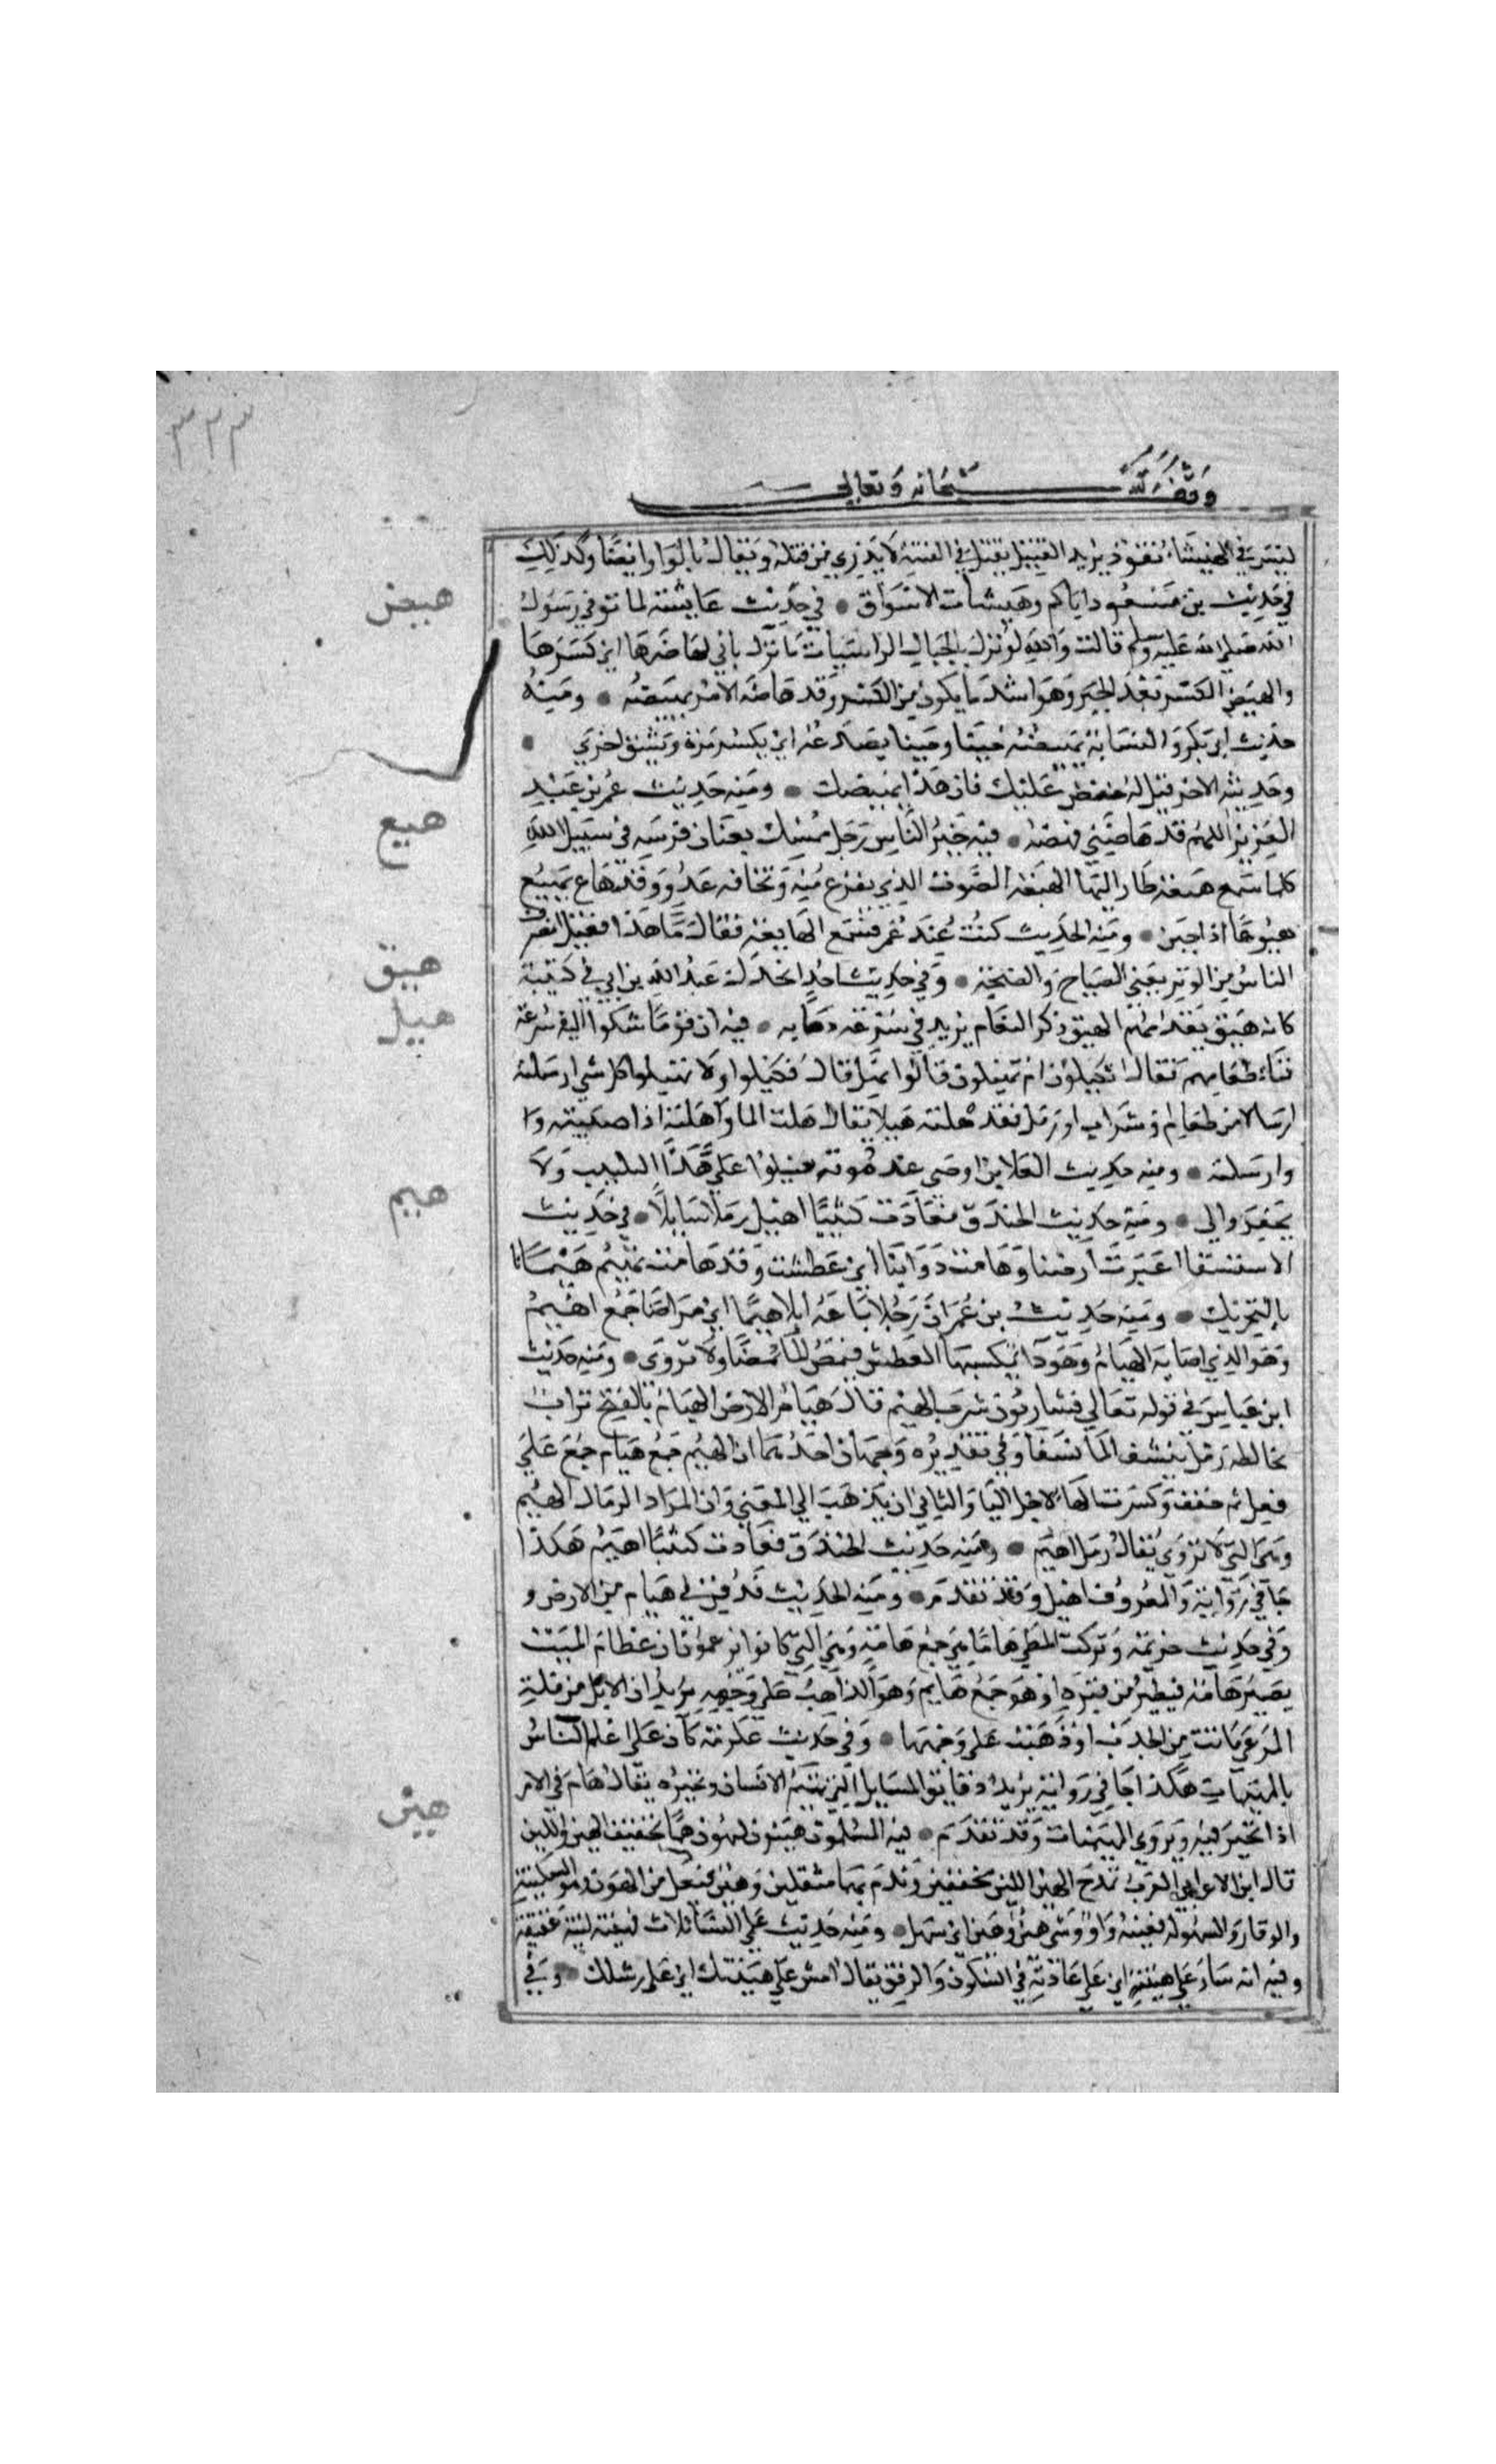 ٣٢٣
وقف لله سبحانه وتعالى
ليس في الهيشات قود يريد القتيل يقتل في الفتنة لا يدري من قتله ويقال بالواو ايضا وكذلك
هيض
في حديث بن مسعود اياكم وهيشات الاسواق • في حديث عايشة لما توفي رسول
الله صلى الله عليه وسلم قالت والله لو نزل بالجبال الراسيات ما نزل بابي لهاضها اي كسرها
والهيض الكسر بعد الجبر وهو اشد ما يكون من الكسر وقد هاضه الامر يهيضه • ومنه
حديث ابي بكر والنسابة يهيضه حينا وحينا يصدعه اي يكسره مرة ويشقه اخرى •
وحديثه الاخر قيل له خفض عليك فان هذا يهيضك • ومنه حديث عمر بن عبد
هيع
العزيز اللهم قد هاضني فهضه • فيه خير الناس رجل ممسك بعنان فرسه في سبيل الله
كلما سمع هيعة طار اليها الهيعة الصوت الذي يفزع منه وتخافه عدو وقد هاع يهيع
هيوعا اذا جبن • ومنه الحديث كنت عند عمر فسمع الهايعة فقال ما هذا فقيل انصرف
هيق
الناس من الوتر يعني الصياح والضجة • وفي حديث احد انخذل عبد الله بن ابي في كتيبة
هيل
كانه هيق يقدمهم الهيق ذكر النعام يريد في سرعة ذهابه • فيه ان قوما شكوا اليه سرعة
فناء طعامهم فقال اتكيلون ام تهيلون قالوا نهيل قال فكيلوا ولا تهيلوا كل شي ارسلته
ارسالا من طعام او شراب او رمل فقد هلته هيلا يقال هلت الما واهلته اذا صببته وا
وارسلته • ومنه حديث العلا بن اوصى عند موته هيلوا علي هذا الكثيب ولا
هيم
تحفروا لي • ومنه حديث الخندق فعادت كثيبا اهيل رملا سايلا • في حديث
الاستسقا اغبرت ارضنا وهامت دوابنا اي عطشت وقد هامت تهيم هيمانا
بالتحريك • ومنه حديث بن عمر ان رجلا باعه ابلا هيما اي مراضا جمع اهيم
وهو الذي اصابه الهيام وهو دا يكسبها العطش فيمص الما مصا ولا تروى • ومنه حديث
ابن عباس في قوله تعالى فشاربون شرب الهيم قال هيام الارض الهيام بالفتح تراب
يخالطه رمل ينشف الما نشفا وفي تقديره وجهان احدهما ان الهيم جمع هيام جمع على
فعل ثم خفف وكسرت الهاء لاجل اليا والثاني ان يذهب الى المعنى وان المراد الرمال الهيم
وهي التي لا تروى يقال رمل اهيم • ومنه حديث الخندق فعادت كثيبا اهيم هكذا
جا في رواية والمعروف اهيل وقد تقدم • ومنه الحديث فدفن في هيام من الارض و
وفي حديث خزيمة وتركت المطي هاما هي جمع هامة وهي التي كانوا يزعمون ان عظام الميت
يصير هامة فيطير من قبره او هو جمع هايم وهو الذاهب على وجهه يريد ان الابل من قلة
المرعى ماتت من الجدب او ذهبت على وجهها • وفي حديث عكرمة كان علي اعلم الناس
هين
بالمهيمات هكذا جا في رواية يريد دقايق المسايل التي تهيم الانسان وتحيره يقال هام في الامر
اذا تحير فيه ويروى المهيمنات وقد تقدم • فيه المسلمون هينون لينون هما تخفيف الهين واللين
قال ابن الاعرابي العرب تمدح الهين اللين مخففين وتذم بهما مثقلين وهين فيعل من الهون وهو السكينة
والوقار والسهولة فعينه واو وشي هين وهين اي سهل • ومنه حديث علي النسا ثلاث فهينة لينة عفيفة
وفيه انه سار على هينته اي على عادته في السكون والرفق يقال امش على هينتك اي على رسلك • وفي